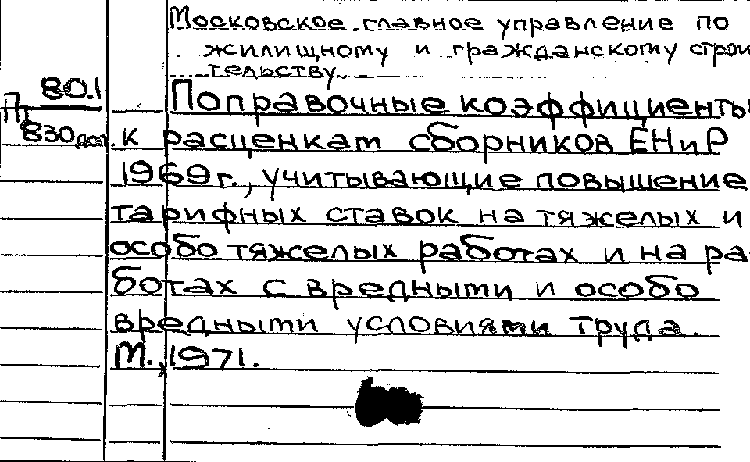 Московское главное управление по
жилищному и гражданскому строи
тельству
80.1
Поправочные коэффициенты
830 доп. к расценкам сборников ЕНиР
1969г., учитывающие повышение
тарифных ставок на тяжелых и
особо тяжелых работах и на ра
ботах с вредными и особо
вредными условиями труда.
М., 1971.